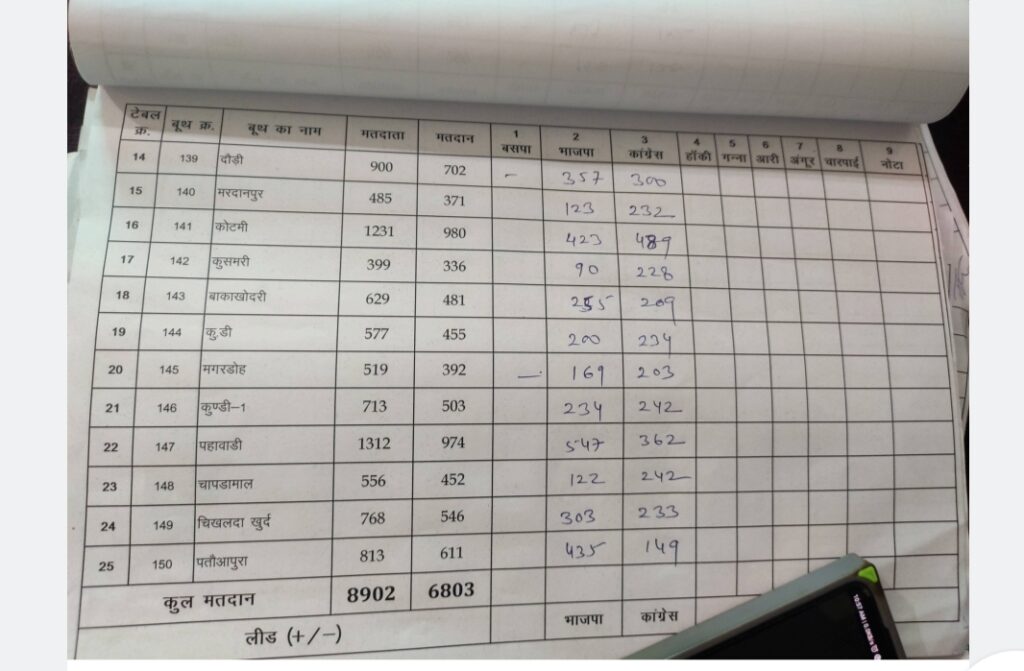 टेबल क्र. बूथ क्र. बूथ का नाम मतदाता मतदान 1 बसपा 2 भाजपा 3 कांग्रेस 4 हॉकी 5 गन्ना 6 आरी 7 अंगूर 8 चारपाई 9 नोटा
14 139 दौड़ी 900 702 - 357 300
15 140 मरदानपुर 485 371 123 232
16 141 कोटमी 1231 980 423 489
17 142 कुसमरी 399 336 90 228
18 143 बाकाखोदरी 629 481 255 209
19 144 कु.डी 577 455 200 234
20 145 मगरडोह 519 392 — 169 203
21 146 कुण्डी-1 713 503 234 242
22 147 पहावाडी 1312 974 547 362
23 148 चापडामाल 556 452 122 242
24 149 चिखलदा खुर्द 768 546 303 233
25 150 पतौआपुरा 813 611 435 149
कुल मतदान 8902 6803
लीड (+/-) भाजपा कांग्रेस